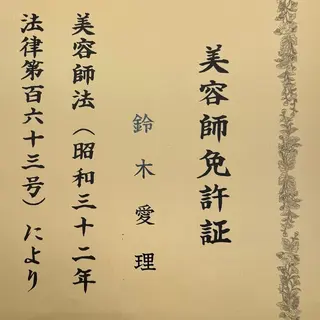 美容師免許証
鈴木愛理
美容師法(昭和三十二年
法律第百六十三号)により